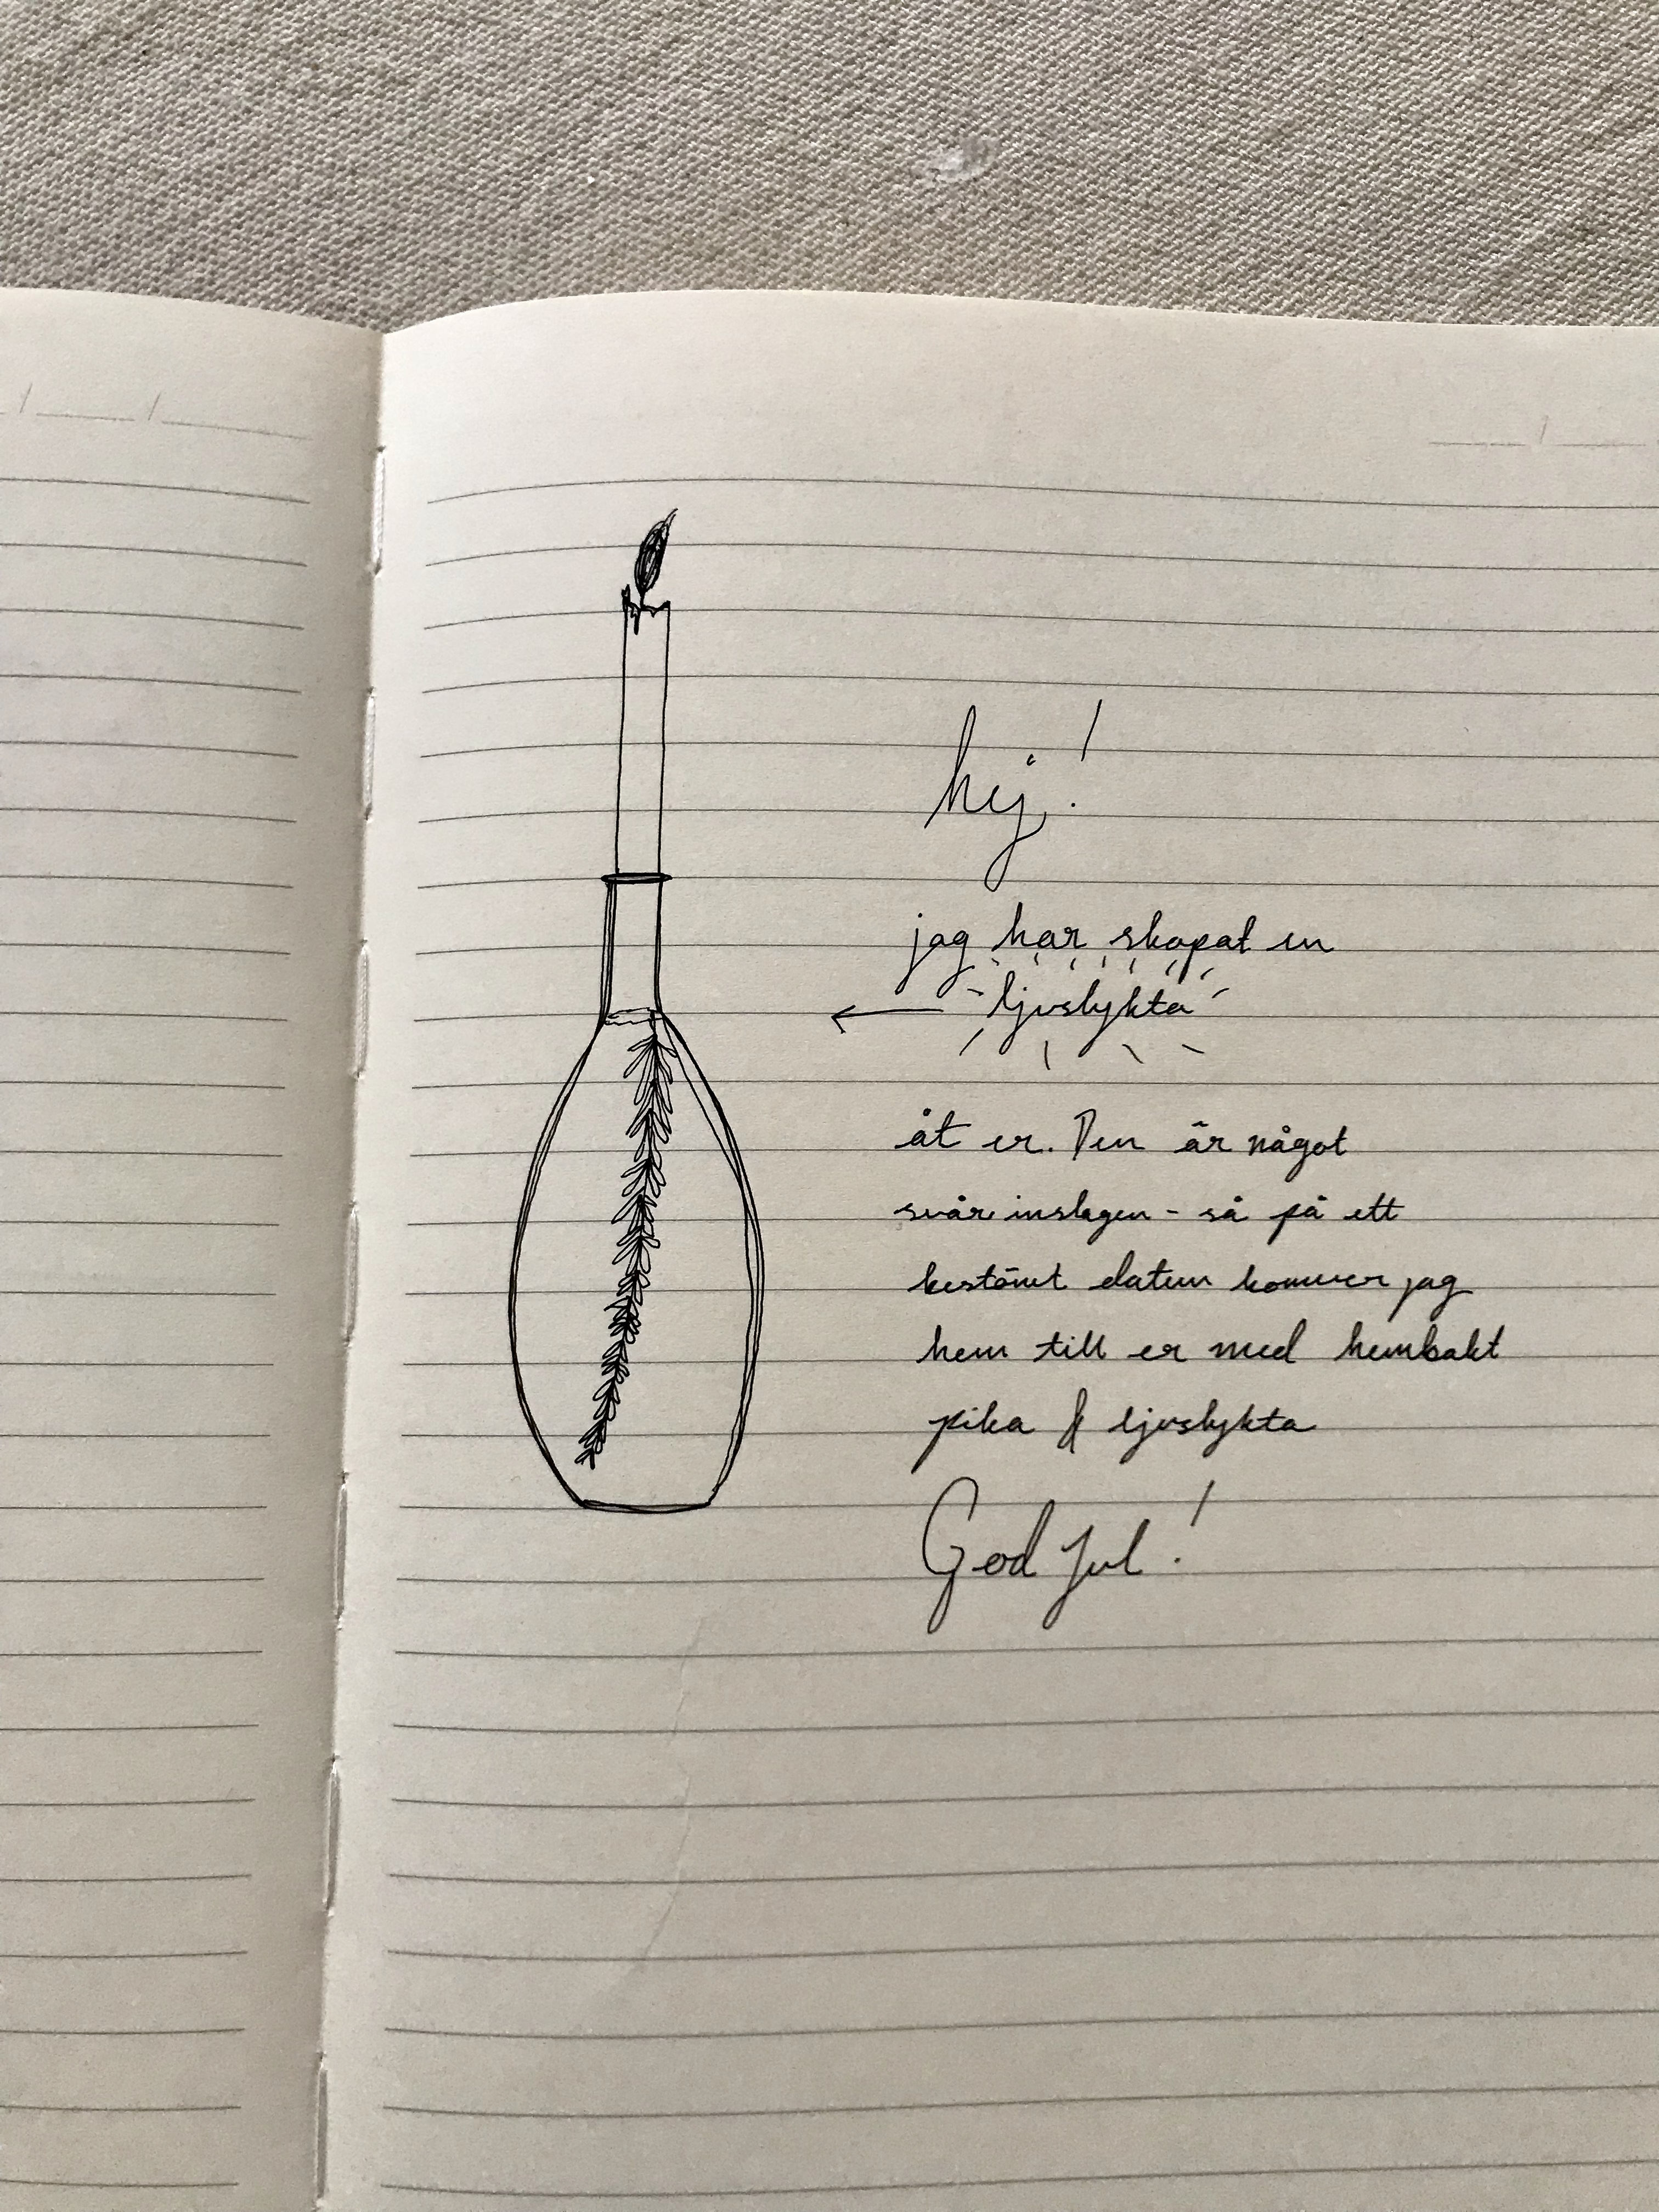 hej!
jag har skapat en
ljuslykta
åt er. Den är något
svår inslagen - så på ett
bestämt datum kommer jag
hem till er med hembakt
fika & ljuslykta
God Jul!